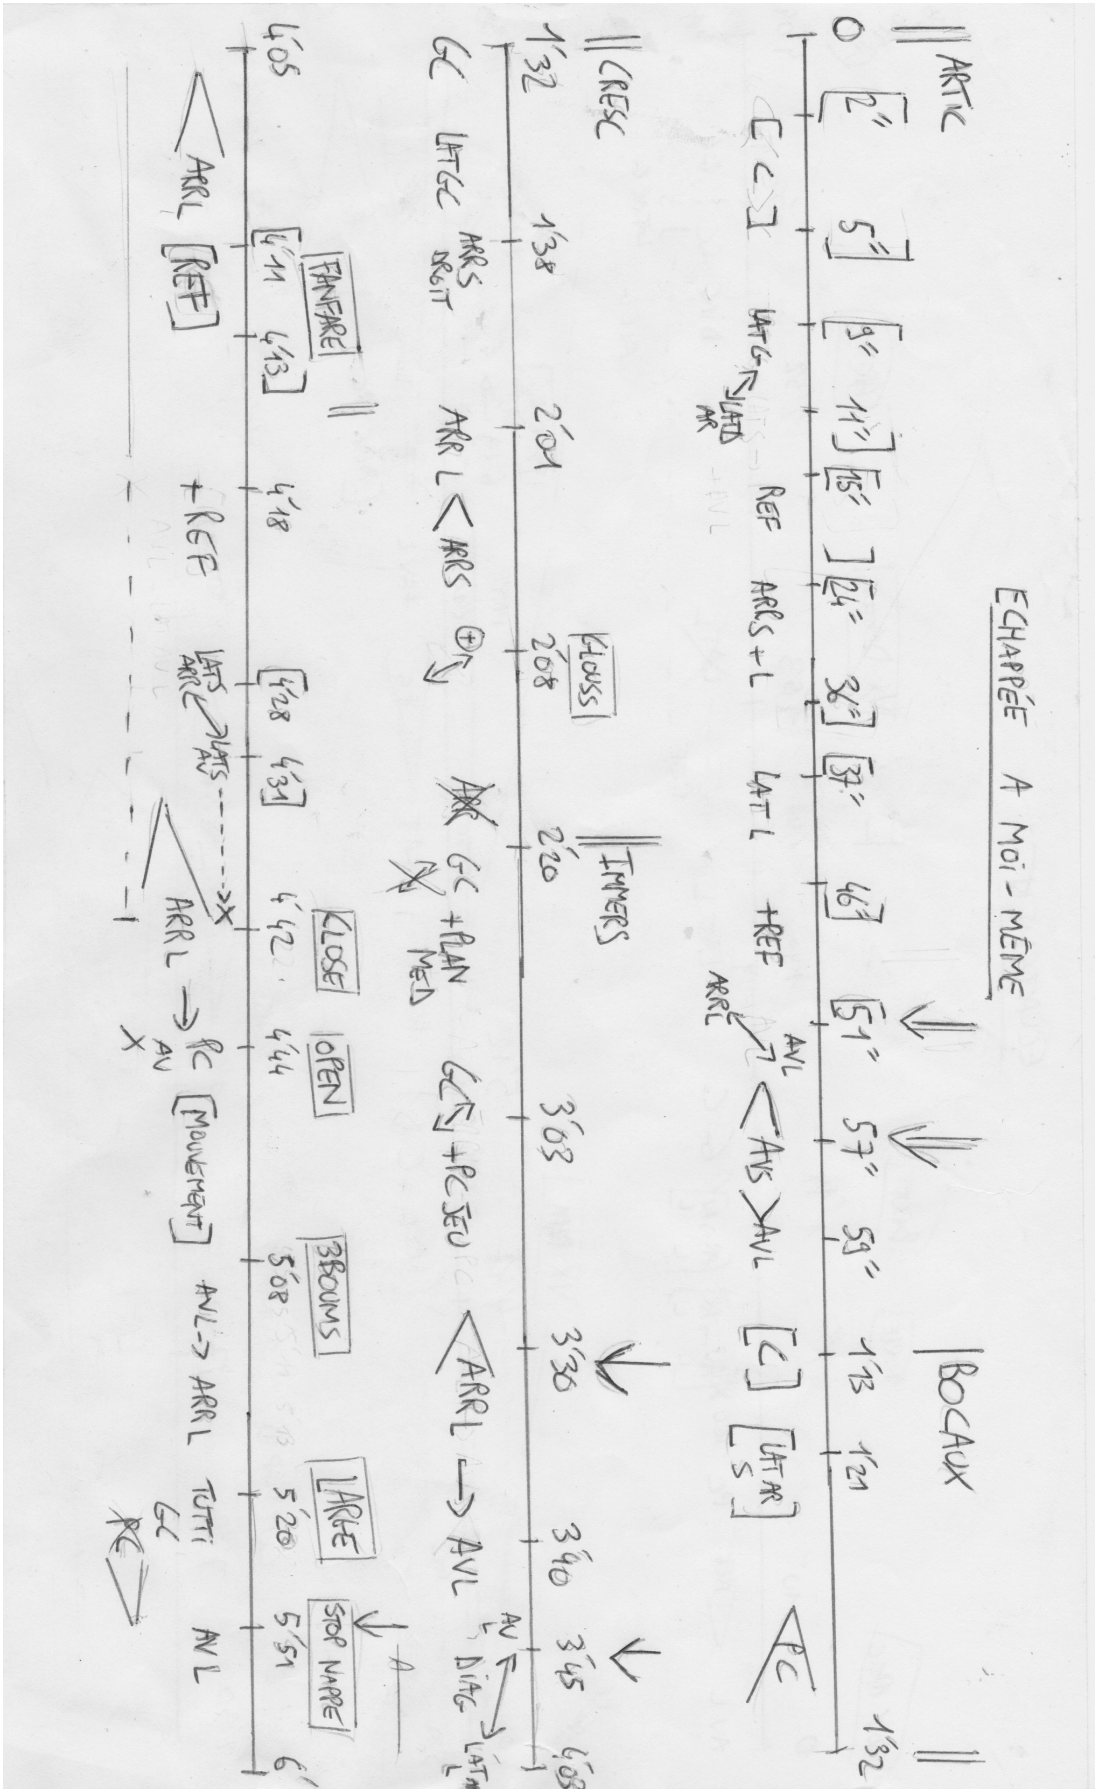 ECHAPPÉE A MOI-MÊME
ARTIC BOCAUX
0 [2" 5"] [9" 11"] [15" ] [24" 36"] [37" 46"] [51" 57" 59" 1'13 1'21 1'32
[C] LATG LATD AR REF ARRS+L LATL +REF ARRL AVL < AVS > AVL [C] [LAT AR S] PC
CRESC GLOUSS IMMERS
1'32 1'38 2'01 2'08 2'20 3'03 3'30 3'40 3'45 4'05
GC LATGC ARRS DROIT ARRL < ARRS + GC +PLAN MED GC +PC JEU < ARRL → AVL AV L DIAG
FANFARE KLOSE OPEN 3BOUMS LARGE STOP NAPPE A
4'05 [4'11 4'13] 4'18 [4'28 4'31] 4'42 4'44 5'08 5'20 5'51 6'
< ARRL [REF] +REF LATS ARRL LATS AV X ARRL → PC AV X [MOUVEMENT] AVL → ARRL TUTTI GC AVL